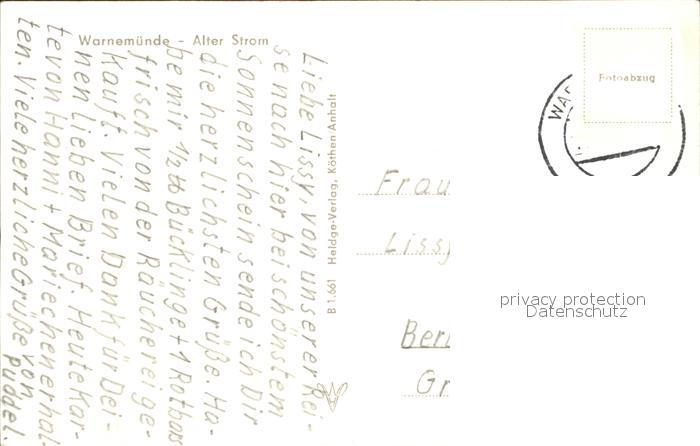 Warnemünde – Alter Strom
Liebe Lissy, von unserer Rei-
se nach hier bei schönstem
Sonnenschein sende ich Dir
die herzlichsten Grüße. Ha-
be mir 1/2 ℔ Bücklinge + 1 Rotbars
frisch von der Räucherei ge-
kauft. Vielen Dank für Dei-
nen lieben Brief. Heute Kar-
te von Hanni + Mariechen erhal-
ten. Viele herzliche Grüße von
Puddel
B 1.661 Heldge-Verlag, Köthen Anhalt
Fotoabzug
WAR
Frau
Lissy
Berl
Gr
privacy protection
Datenschutz